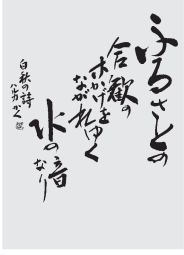 ふるさとの
合歓の
木かげを
ながれゆく
水の音
なり
白秋の詩
ハルカかく